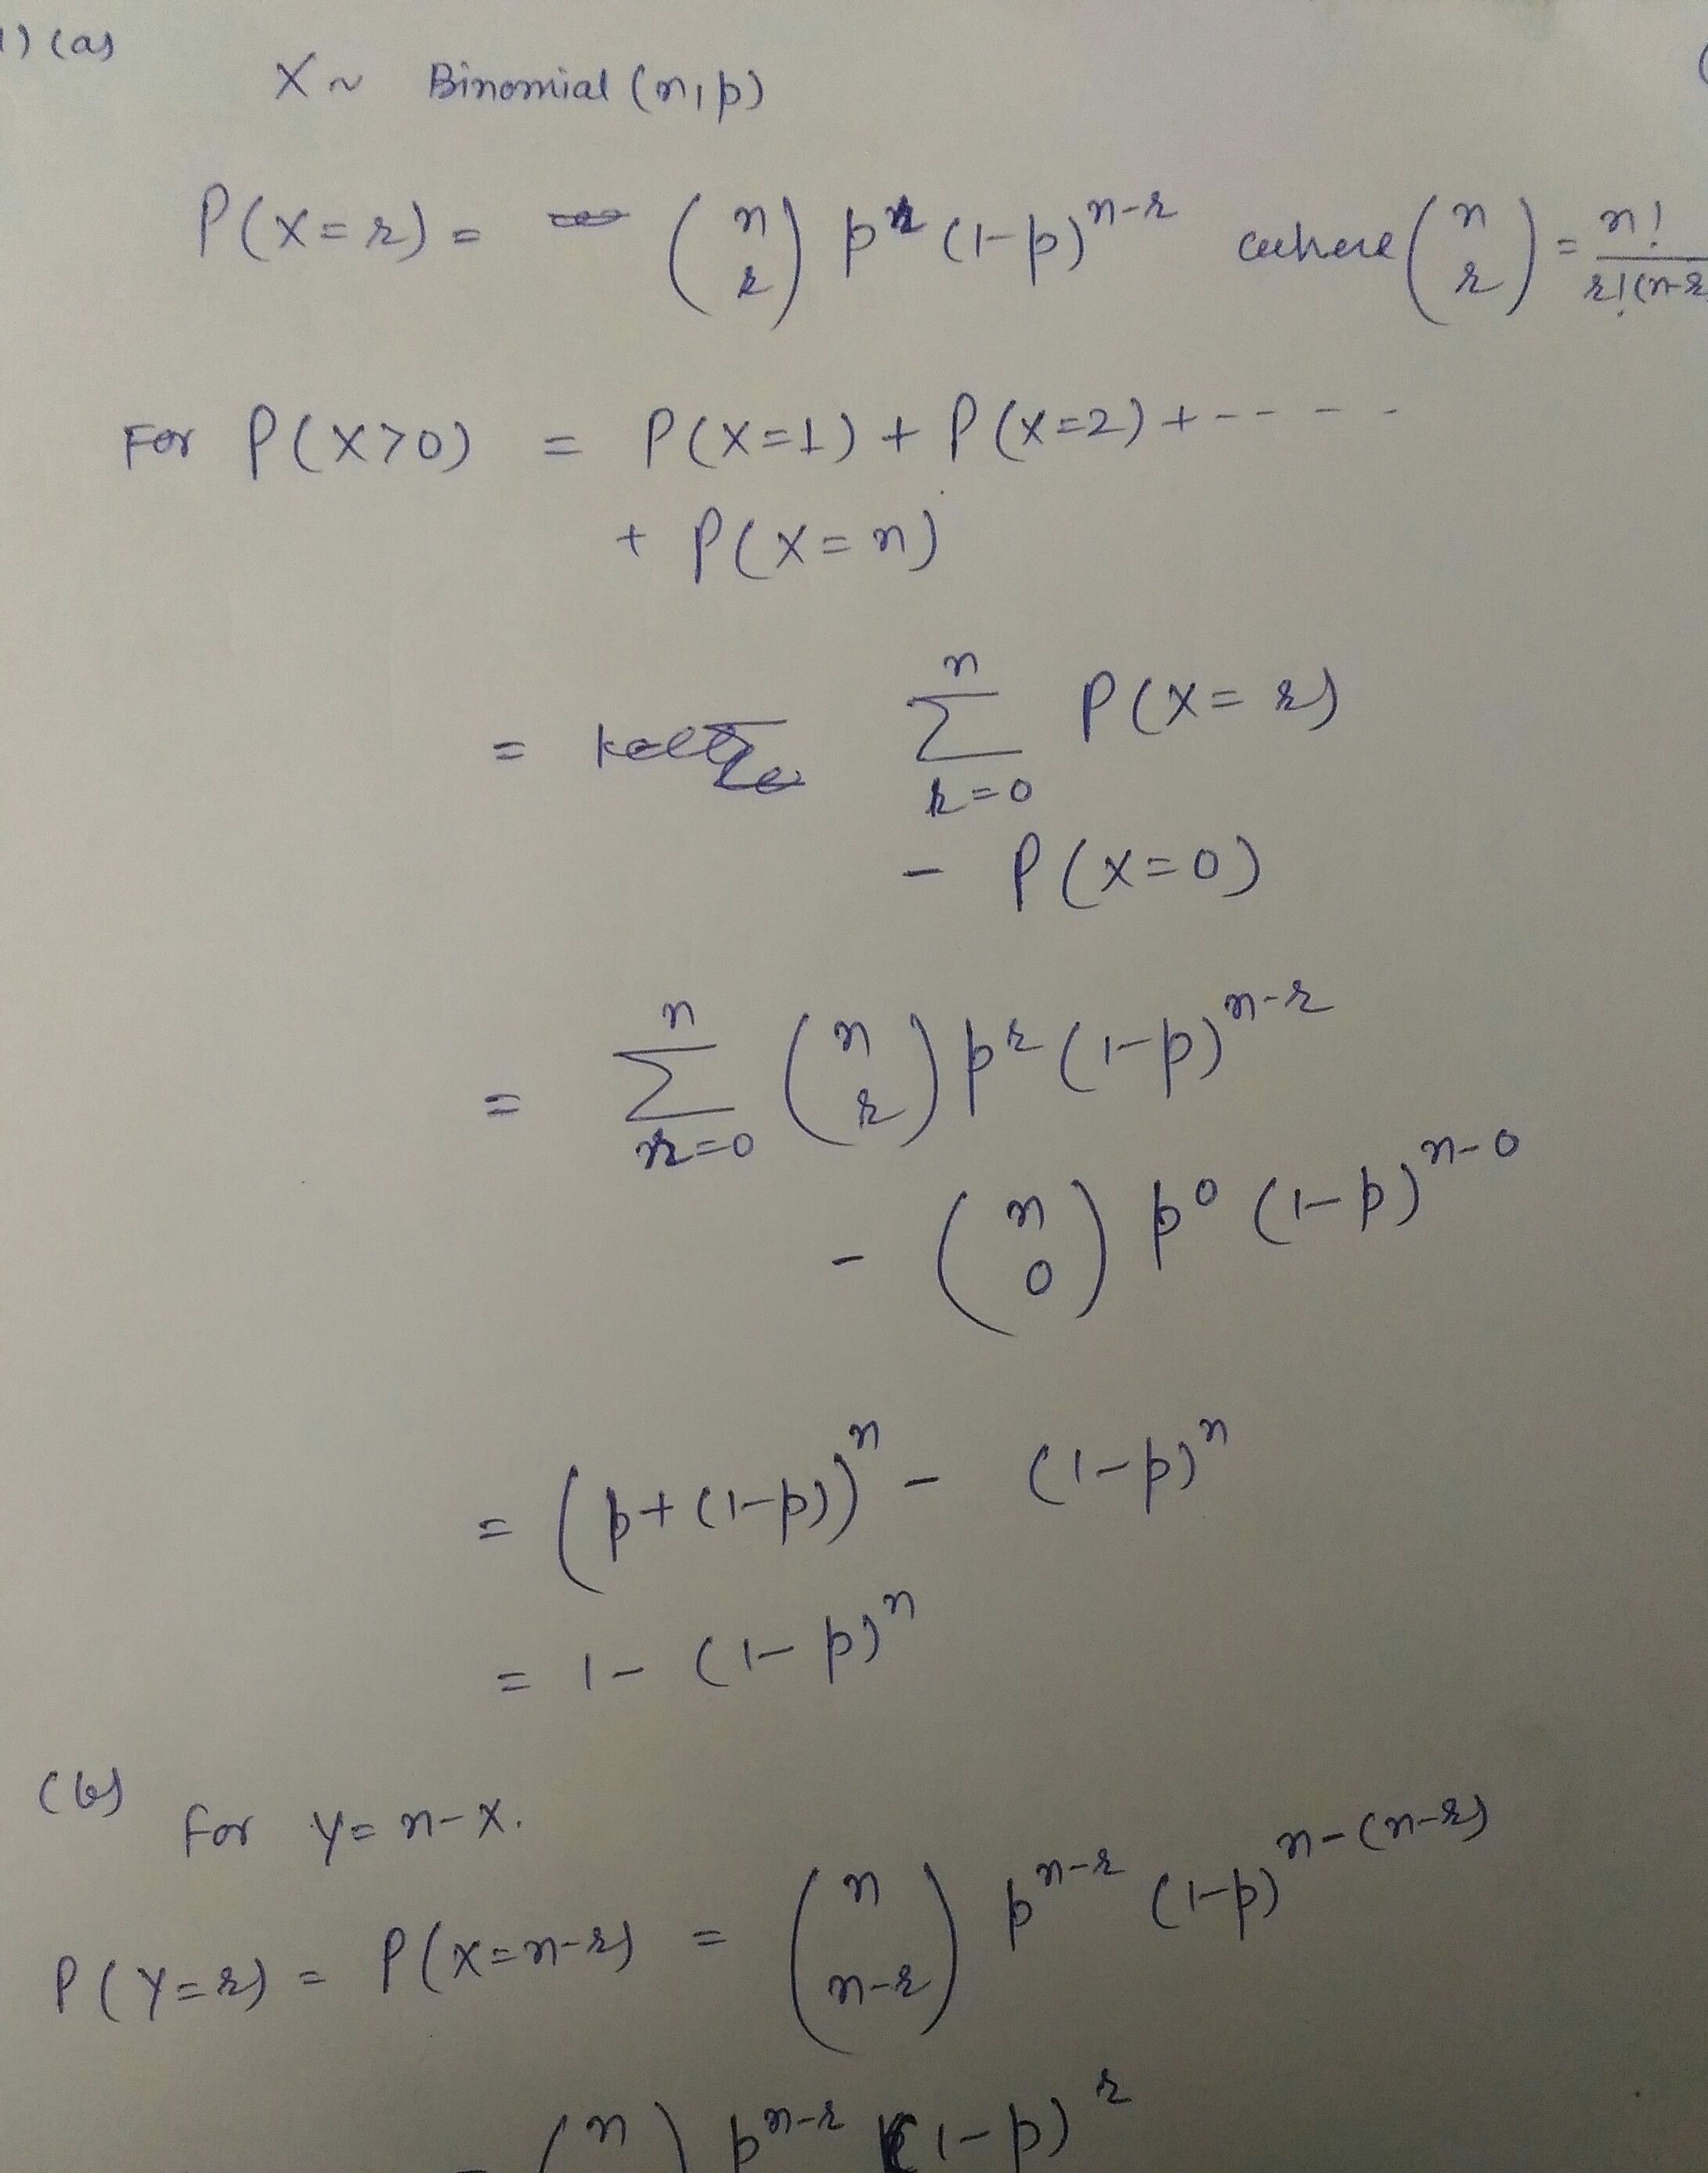 1) (a)
X ~ Binomial (n, p)
P(X=r) = (n r) p^r (1-p)^n-r where (n r) = n! / r!(n-r
For P(X>0) = P(X=1) + P(X=2) + - - - - -
+ P(X=n)
= n Σ r=0 P(X=r)
- P(X=0)
= n Σ r=0 (n r) p^r (1-p)^n-r
- (n 0) p^0 (1-p)^n-0
= (p+(1-p))^n - (1-p)^n
= 1 - (1-p)^n
(b) For Y = n-X.
P(Y=r) = P(X=n-r) = (n n-r) p^n-r (1-p)^n-(n-r)
= (n ) p^n-r (1-p)^r